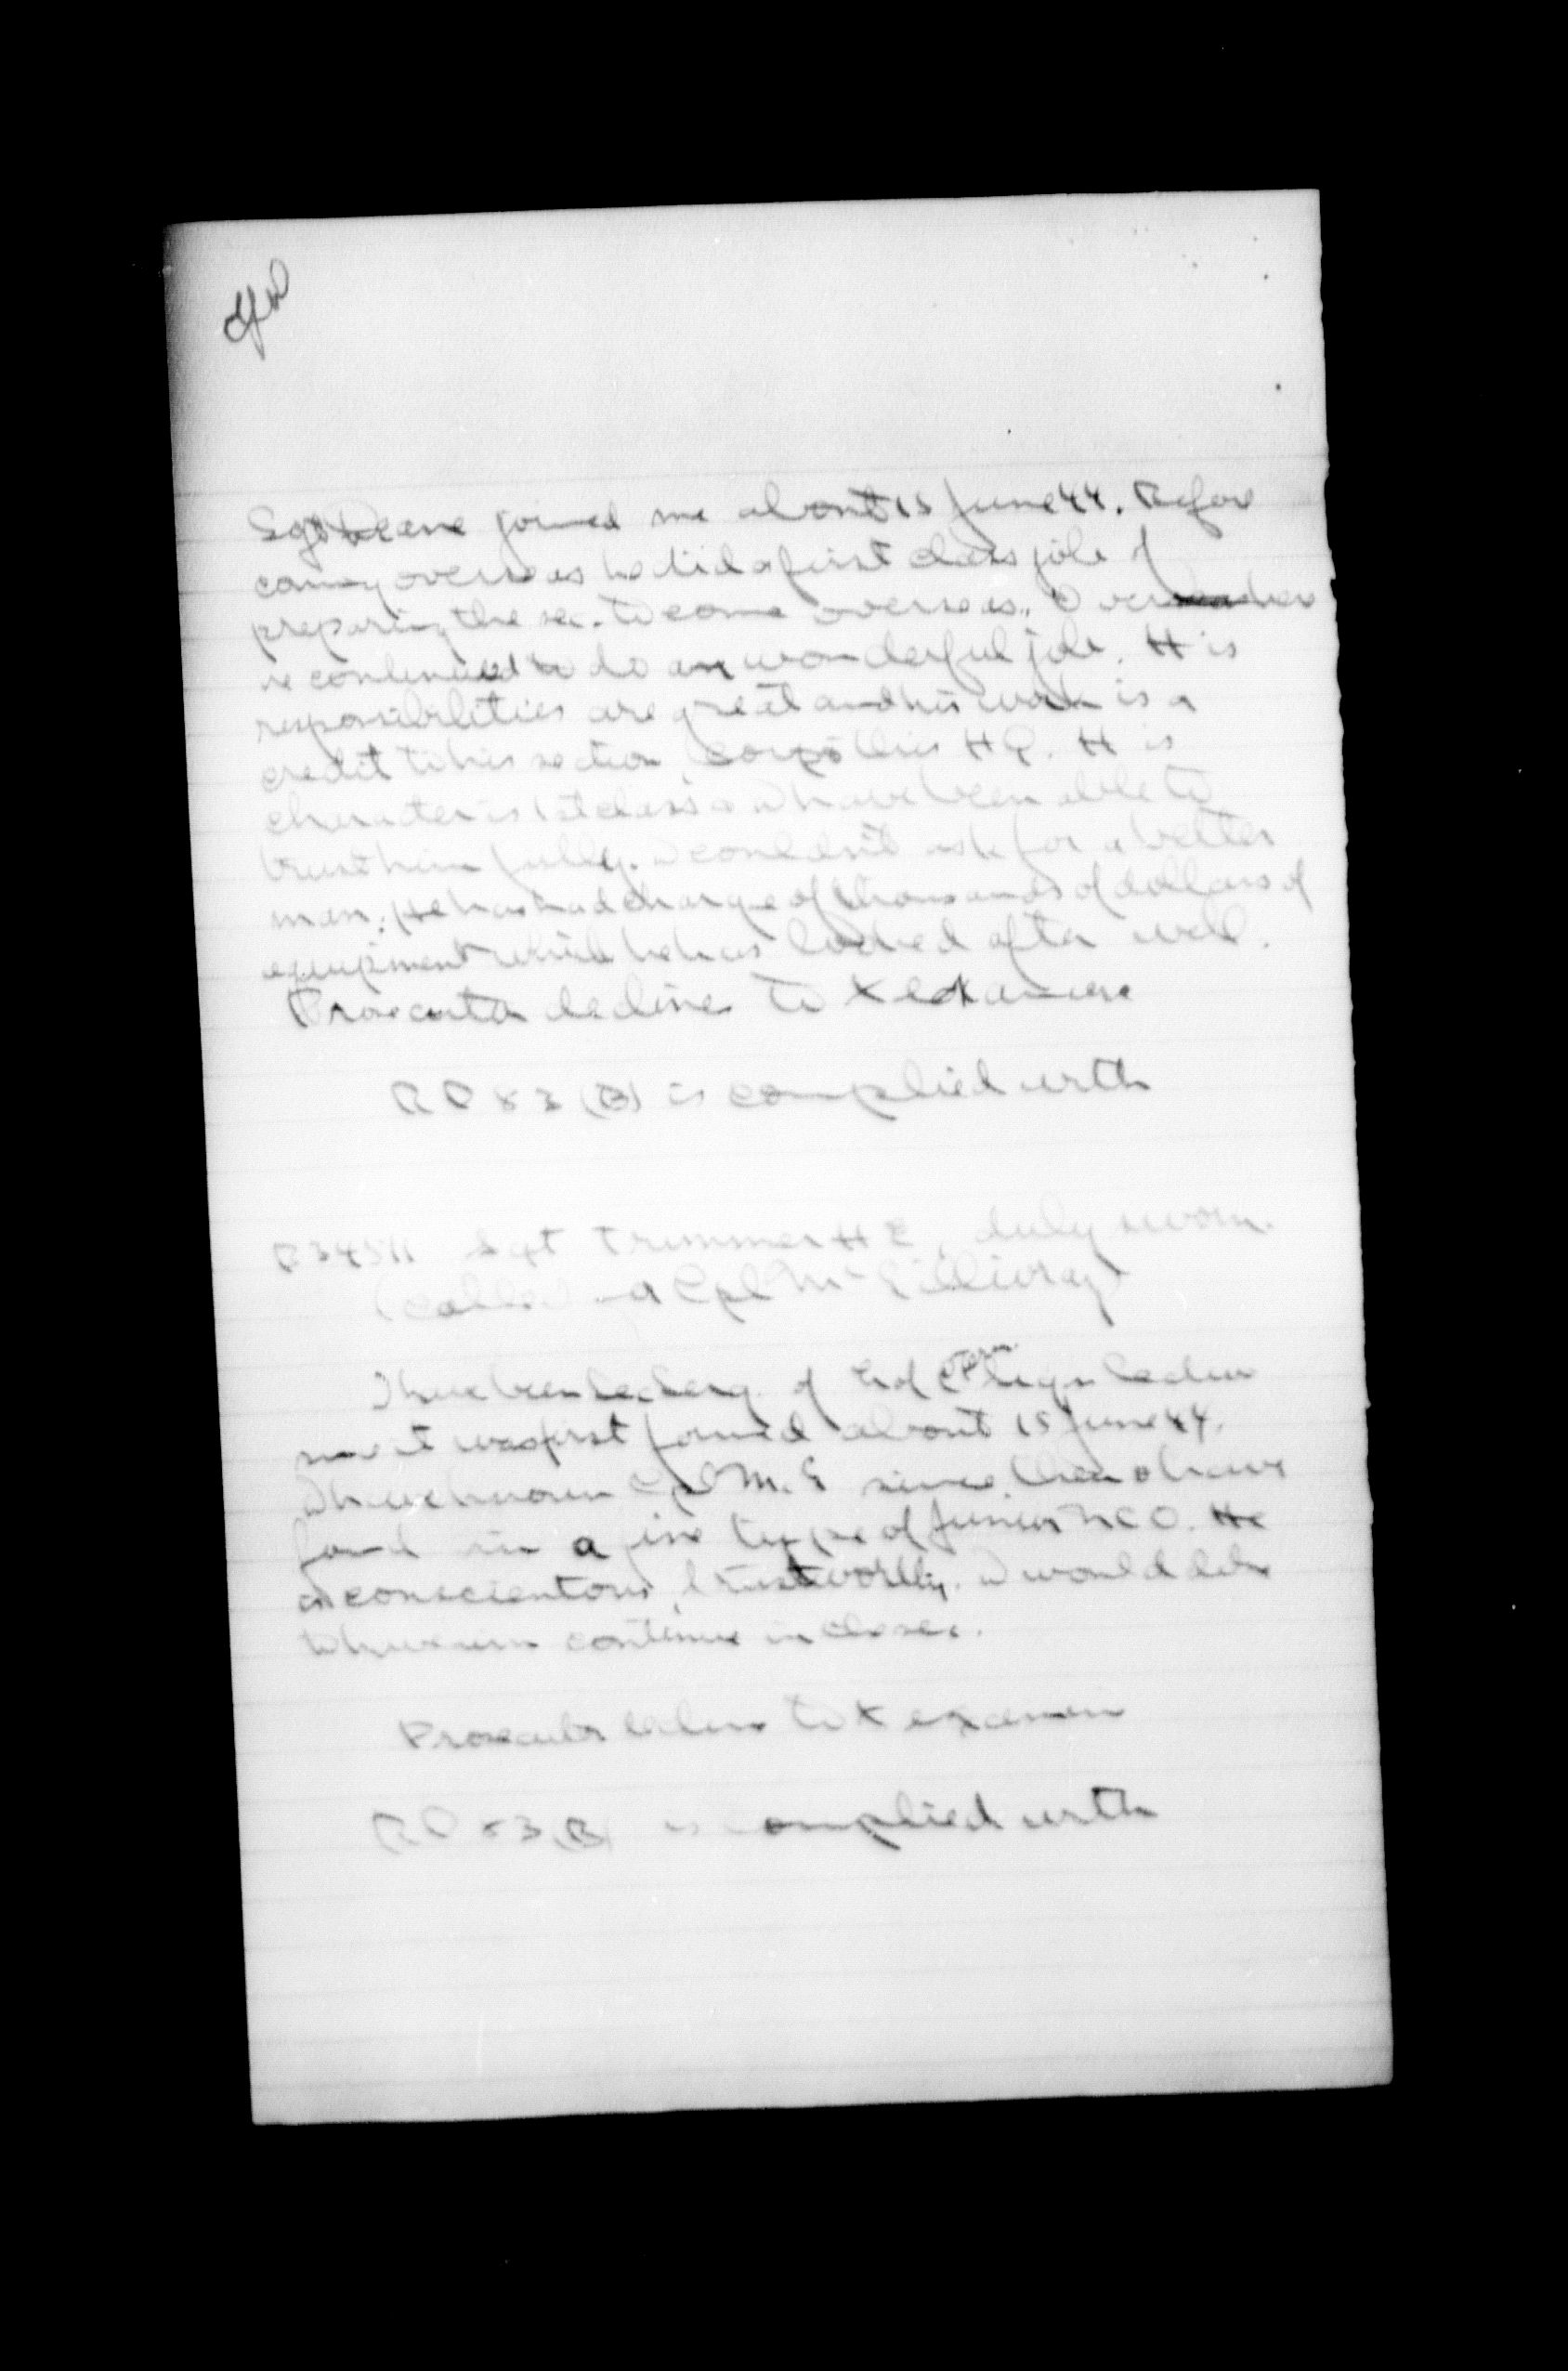 Sgt Deane joined me about 15 June 44. Before
coming overseas he did a first class job of
preparing the sec. to come overseas. Overseas
he continued to do a wonderful job. His
responsibilities are great and his work is a
credit to his section, corps & this HQ. His
character is 1st class & I have been able to
trust him fully. I couldn't ask for a better
man. He has had charge of thousands of dollars of
equipment which he has looked after well.
Prosecutor declines to X examine
RP 83 (B) is complied with
Sgt Trimmer H E, duly sworn.
(called Cpl McGillivray)
I have been of
it was first formed about 15 June 44.
I have known Cpl McG since then & have
found him a fine type of Junior NCO. He
is conscientous, trustworthy. I would like
to have him continue in
Prosecutor declines to X examine
RP 83 (B) is complied with